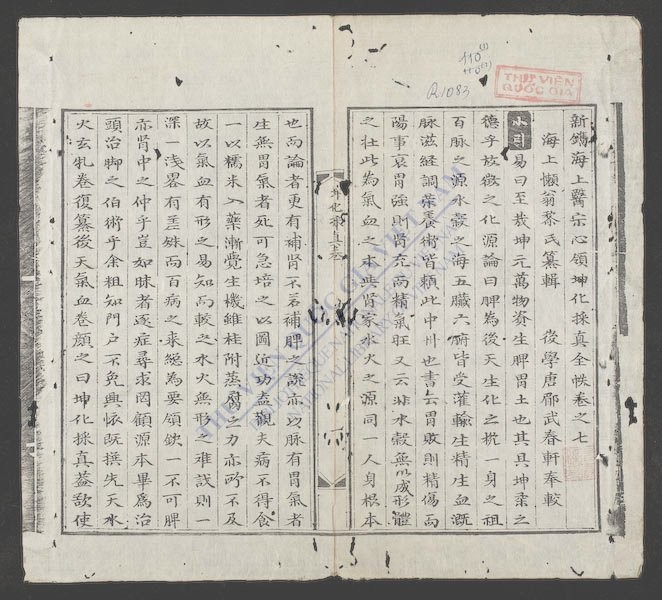 新鐫海上醫宗心領坤化採真全帙卷之七
海上懶翁黎氏纂輯 後學唐郿武春軒奉較
小引 易曰至哉坤元萬物資生脾胃土也其具坤柔之
德乎故徵之化源論曰脾為後天生化之抗一身之祖
百脉之源水穀之海五臟六腑皆受灌輸生精生血溉
脉滋経調葉養術皆頼此中州也書云胃敗則精傷而
陽事衰胃強則肾充而精氣旺又云非水穀無以成形體
之壮此為氣血之本與肾家水火之源同一人身根本
也而論者更有補肾不若補脾之說亦以脉有胃氣者
生無胃氣者死可急培之以圖近功盍觀夫病不得食
一以糯米入藥漸覺生機維桂附蒸腐之力亦所不及
故以氣血有形之易知而較之水火無形之难識則一
深一淺畧有殊而百病之來総為要領欽一不可脾
亦肾中之仲乎豈如昧者逐症尋求罔顧源本畢為治
頭治脚之伯術乎余粗知門户不免興怀既撰先天水
火玄牝卷復纂後天氣血卷顔之曰坤化採真蓋敌使
坤化採真卷
THƯ VIỆN
QUỐC GIA
R.1083
THƯ VIỆN QUỐC GIA VIỆT NAM
NATIONAL LIBRARY OF VIETNAM